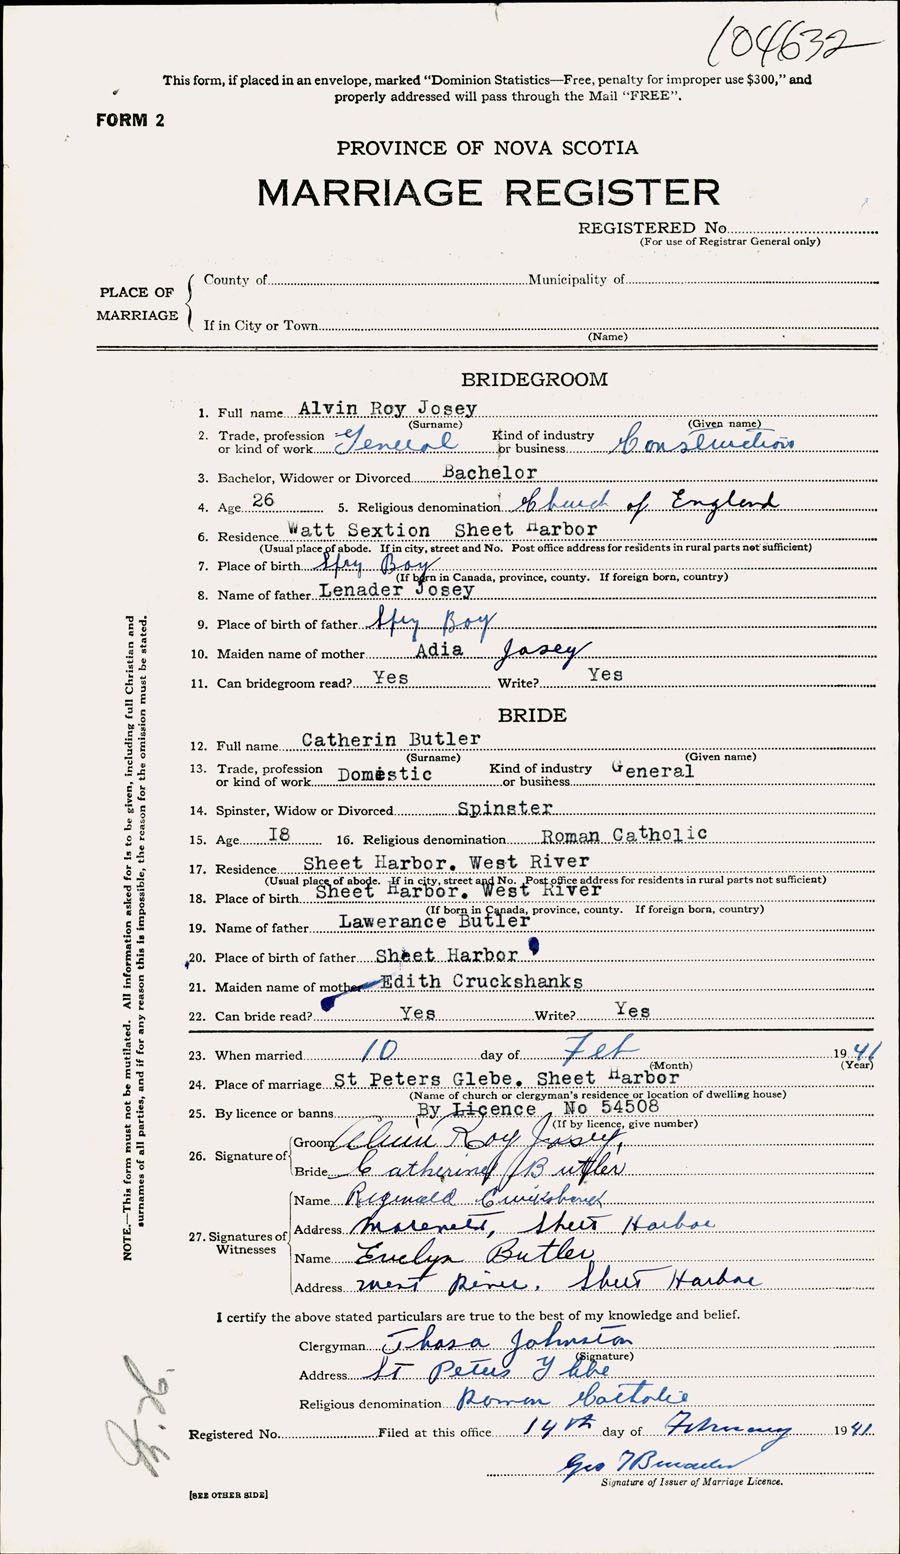 104632
This form, if placed in an envelope, marked “Dominion Statistics—Free, penalty for improper use $300,” and
properly addressed will pass through the Mail “FREE”.
FORM 2
PROVINCE OF NOVA SCOTIA
MARRIAGE REGISTER
REGISTERED No.
(For use of Registrar General only)
PLACE OF MARRIAGE
County of Municipality of
If in City or Town
(Name)
BRIDEGROOM
1. Full name Alvin Roy Josey
(Surname) (Given name)
2. Trade, profession or kind of work General Kind of industry or business Construction
3. Bachelor, Widower or Divorced Bachelor
4. Age 26 5. Religious denomination Church of England
6. Residence Watt Sextion Sheet Harbor
(Usual place of abode. If in city, street and No. Post office address for residents in rural parts not sufficient)
7. Place of birth Spry Bay
(If born in Canada, province, county. If foreign born, country)
8. Name of father Lenader Josey
9. Place of birth of father Spry Bay
10. Maiden name of mother Adia Josey
11. Can bridegroom read? Yes Write? Yes
BRIDE
12. Full name Catherin Butler
(Surname) (Given name)
13. Trade, profession or kind of work Domestic Kind of industry or business General
14. Spinster, Widow or Divorced Spinster
15. Age I8 16. Religious denomination Roman Catholic
17. Residence Sheet Harbor. West River
(Usual place of abode. If in city, street and No. Post office address for residents in rural parts not sufficient)
18. Place of birth Sheet Harbor. West River
(If born in Canada, province, county. If foreign born, country)
19. Name of father Lawerance Butler
20. Place of birth of father Sheet Harbor
21. Maiden name of mother Edith Cruckshanks
22. Can bride read? Yes Write? Yes
23. When married 10 day of Feb 1941
(Month) (Year)
24. Place of marriage St Peters Glebe. Sheet Harbor
(Name of church or clergyman's residence or location of dwelling house)
25. By licence or banns By Licence No 54508
(If by licence, give number)
26. Signature of Groom Alvin Roy Josey.
Bride Catherine Butler
27. Signatures of Witnesses Name Reginald
Address Sheet Harbor
Name Evelyn Butler
Address West River. Sheet Harbor
I certify the above stated particulars are true to the best of my knowledge and belief.
Clergyman Johnston
(Signature)
Address St Peters Glebe
Religious denomination Roman Catholic
Registered No. Filed at this office 14th day of February 1941.
Geo
Signature of Issuer of Marriage Licence.
[SEE OTHER SIDE]
NOTE.—This form must not be mutilated. All information asked for is to be given, including full Christian and
surnames of all parties, and if for any reason this is impossible, the reason for the omission must be stated.